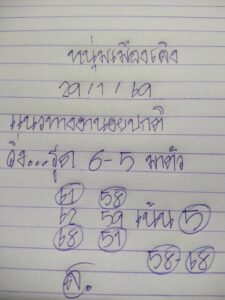 หนุ่มเมืองเลิง
29/1/69
แนวทางฮานอยปกติ
วิ่ง...รูด 6-5 มาตัว
61 58
62 59 เน้น 5
68 51
58-68